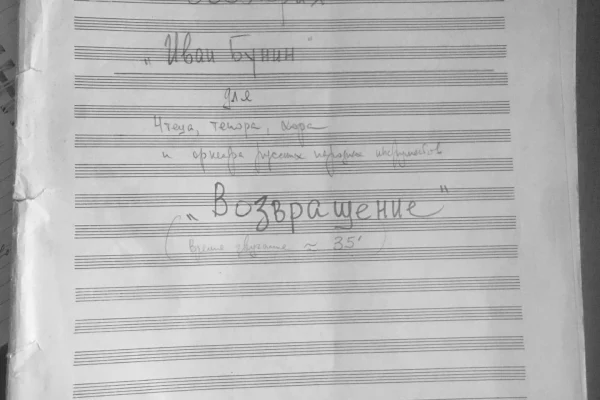 „Иван Бунин"
для
Чтеца, тенора, хора
и оркестра русских народных инструментов
„Возвращение"
(Время звучания ≈ 35')